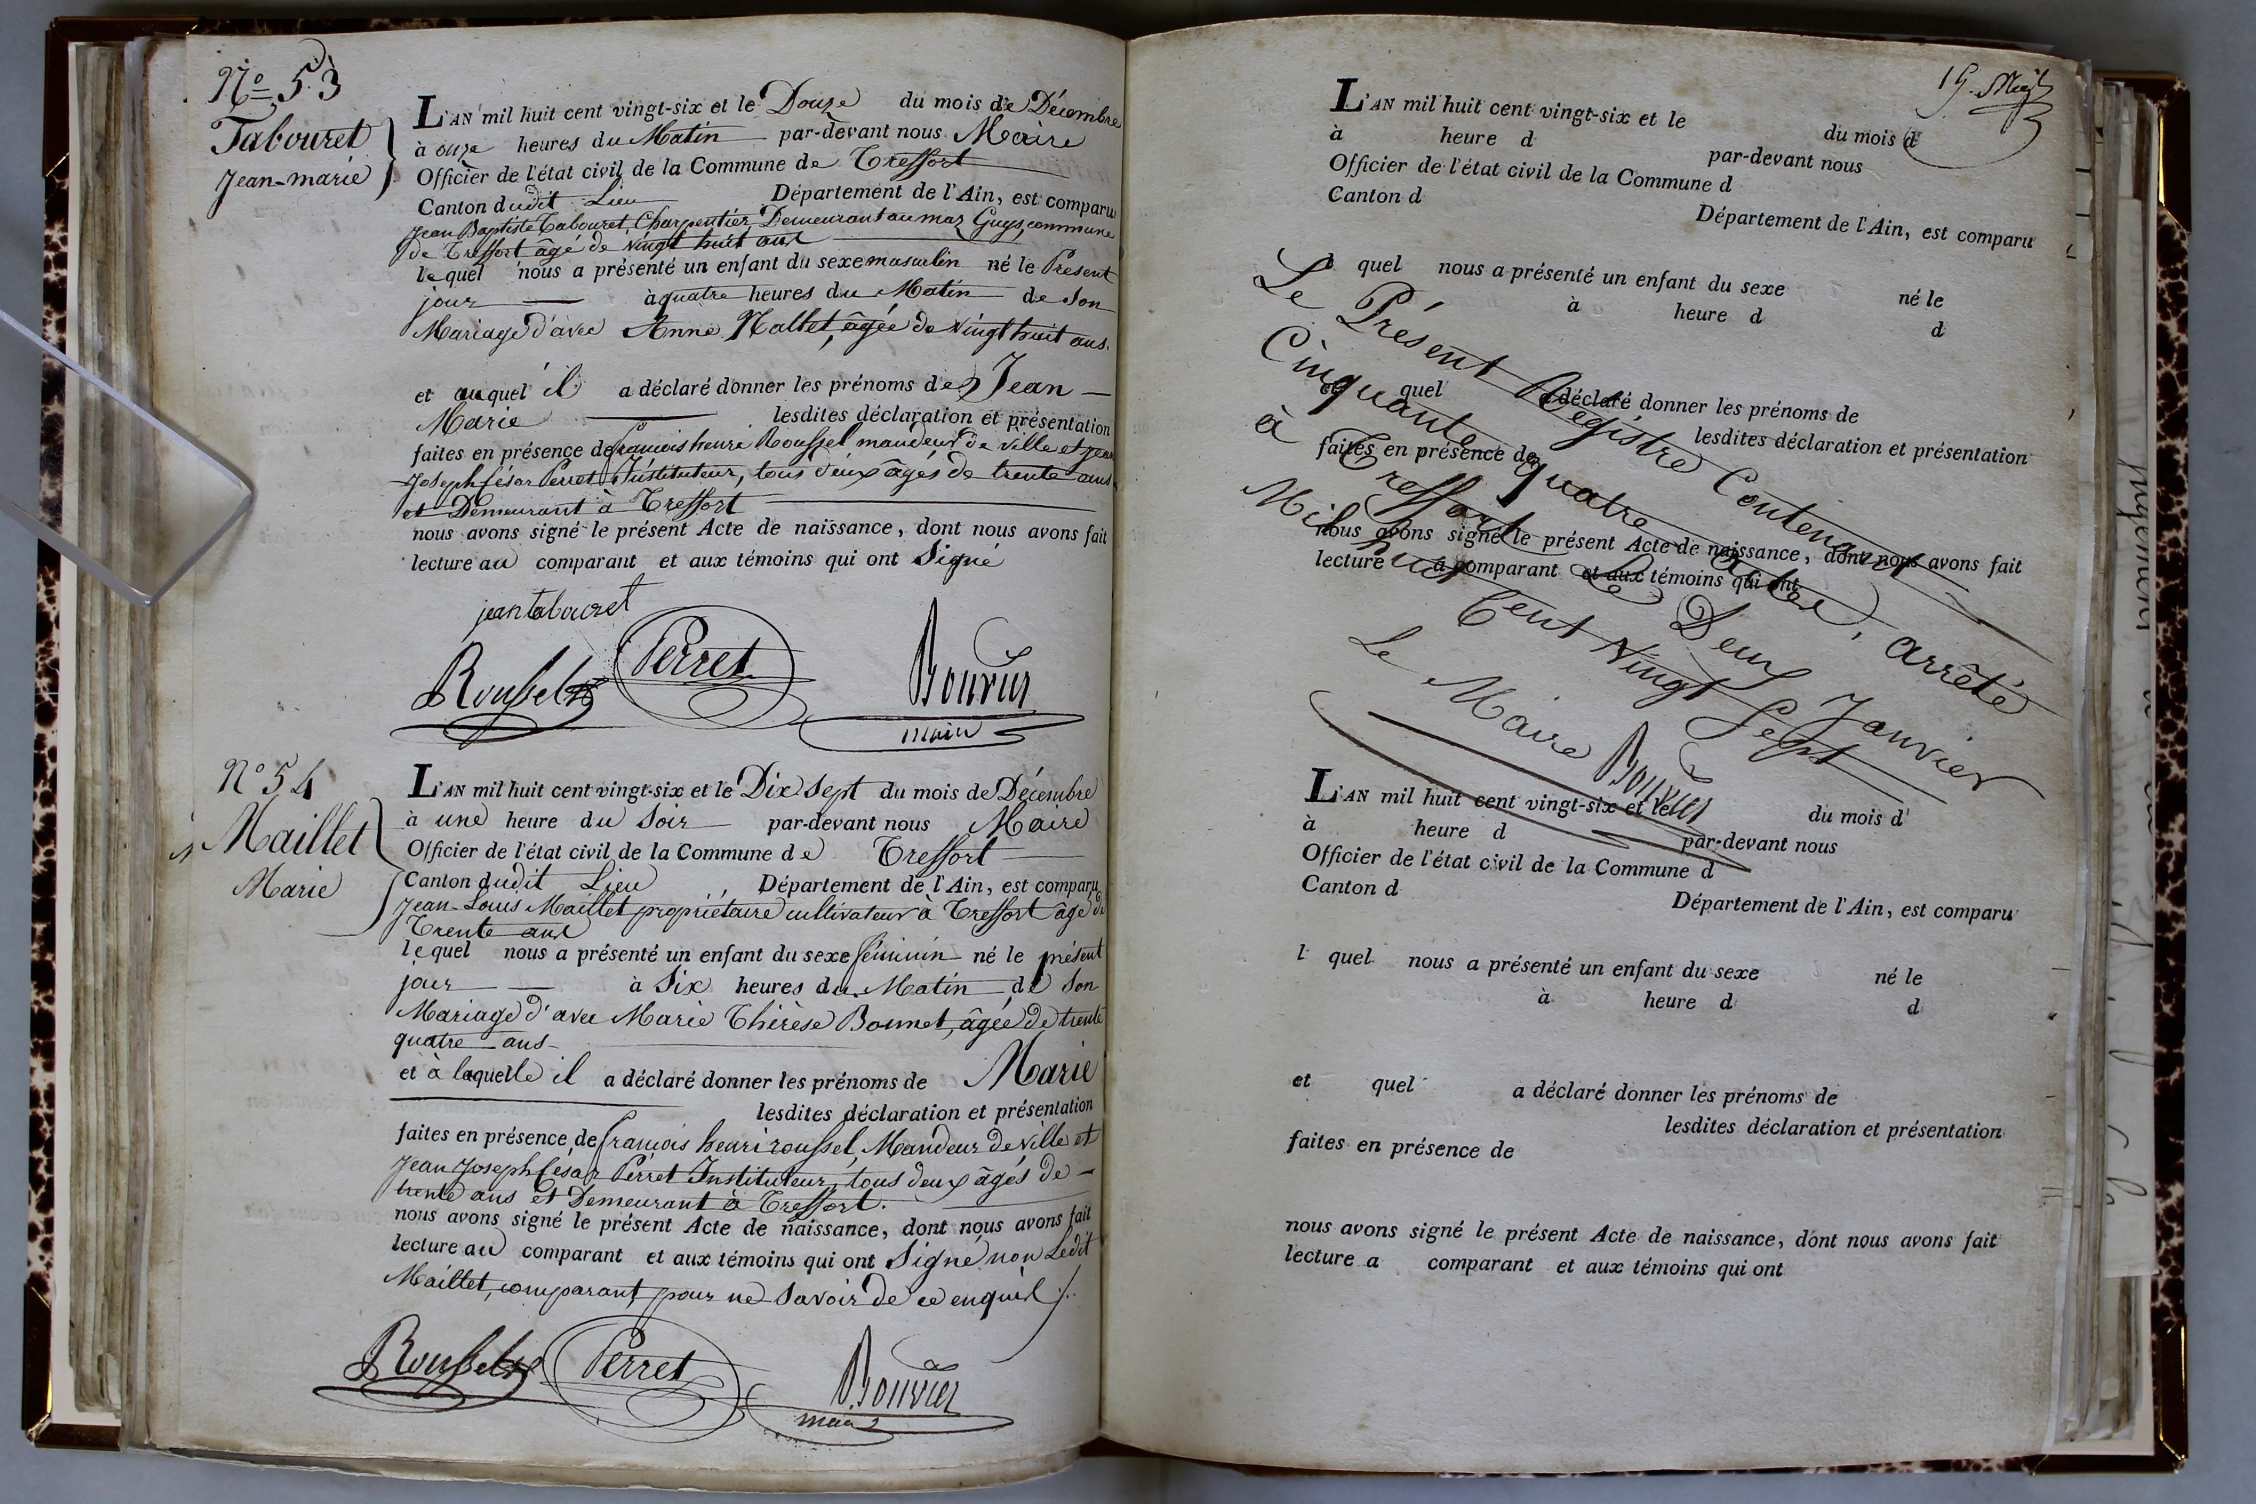 N.º 53
Tabouret
Jean-marie
L'AN mil huit cent vingt-six et le Douze du mois de Décembre
à onze heures du Matin par-devant nous Maire
Officier de l'état civil de la Commune de Treffort
Canton dudit Lieu Département de l'Ain, est comparu
Jean Baptiste Tabouret, Charpentier, Demeurant au maz Guys, commune
de Treffort âgé de vingt huit ans
lequel nous a présenté un enfant du sexe masculin né le Présent
jour à quatre heures du Matin de Son
Mariage d'avec Anne Nallet, âgée de vingt huit ans.
et auquel il a déclaré donner les prénoms de Jean
Marie lesdites déclaration et présentation
faites en présence de françois henri Roussel mandeur de ville et Jean
Joseph César Perret Instituteur, tous deux âgés de trente ans
et Demeurant à Treffort
nous avons signé le présent Acte de naissance, dont nous avons fait
lecture au comparant et aux témoins qui ont Signé
jean tabouret
Roussel Perret Bouvier
maire
Nº 54
Maillet
Marie
L'AN mil huit cent vingt-six et le Dix Sept du mois de Décembre
à une heure du Soir par-devant nous Maire
Officier de l'état civil de la Commune de Treffort
Canton dudit Lieu Département de l'Ain, est comparu
Jean-Louis Maillet propriétaire cultivateur à Treffort âgé de
Trente ans
lequel nous a présenté un enfant du sexe féminin né le présent
jour à Six heures du Matin de Son
Mariage d'avec Marie Thérèse Bonnet, âgée de trente
quatre ans
et à laquelle il a déclaré donner les prénoms de Marie
lesdites déclaration et présentation
faites en présence de françois henri roussel, Mandeur de Ville et
Jean Joseph César Perret Instituteur, tous deux âgés de
trente ans et Demeurant à Treffort.
nous avons signé le présent Acte de naissance, dont nous avons fait
lecture au comparant et aux témoins qui ont Signé non Ledit
Maillet, comparant, pour ne Savoir de ce enquis
Roussel Perret Bouvier
maire
19.
L'AN mil huit cent vingt-six et le du mois d
à heure d par-devant nous
Officier de l'état civil de la Commune d
Canton d Département de l'Ain, est comparu
l quel nous a présenté un enfant du sexe né le
à heure d d
et quel a déclaré donner les prénoms de
lesdites déclaration et présentation
faites en présence de
nous avons signé le présent Acte de naissance, dont nous avons fait
lecture a comparant et aux témoins qui ont
Le Présent Registre Contenant
Cinquante quatre actes, arrêté
à Treffort Le Deux Janvier
Mil huit Cent Vingt Sept
Le Maire Bouvier
L'AN mil huit cent vingt-six et le du mois d
à heure d par-devant nous
Officier de l'état civil de la Commune d
Canton d Département de l'Ain, est comparu
l quel nous a présenté un enfant du sexe né le
à heure d d
et quel a déclaré donner les prénoms de
lesdites déclaration et présentation
faites en présence de
nous avons signé le présent Acte de naissance, dont nous avons fait
lecture a comparant et aux témoins qui ont